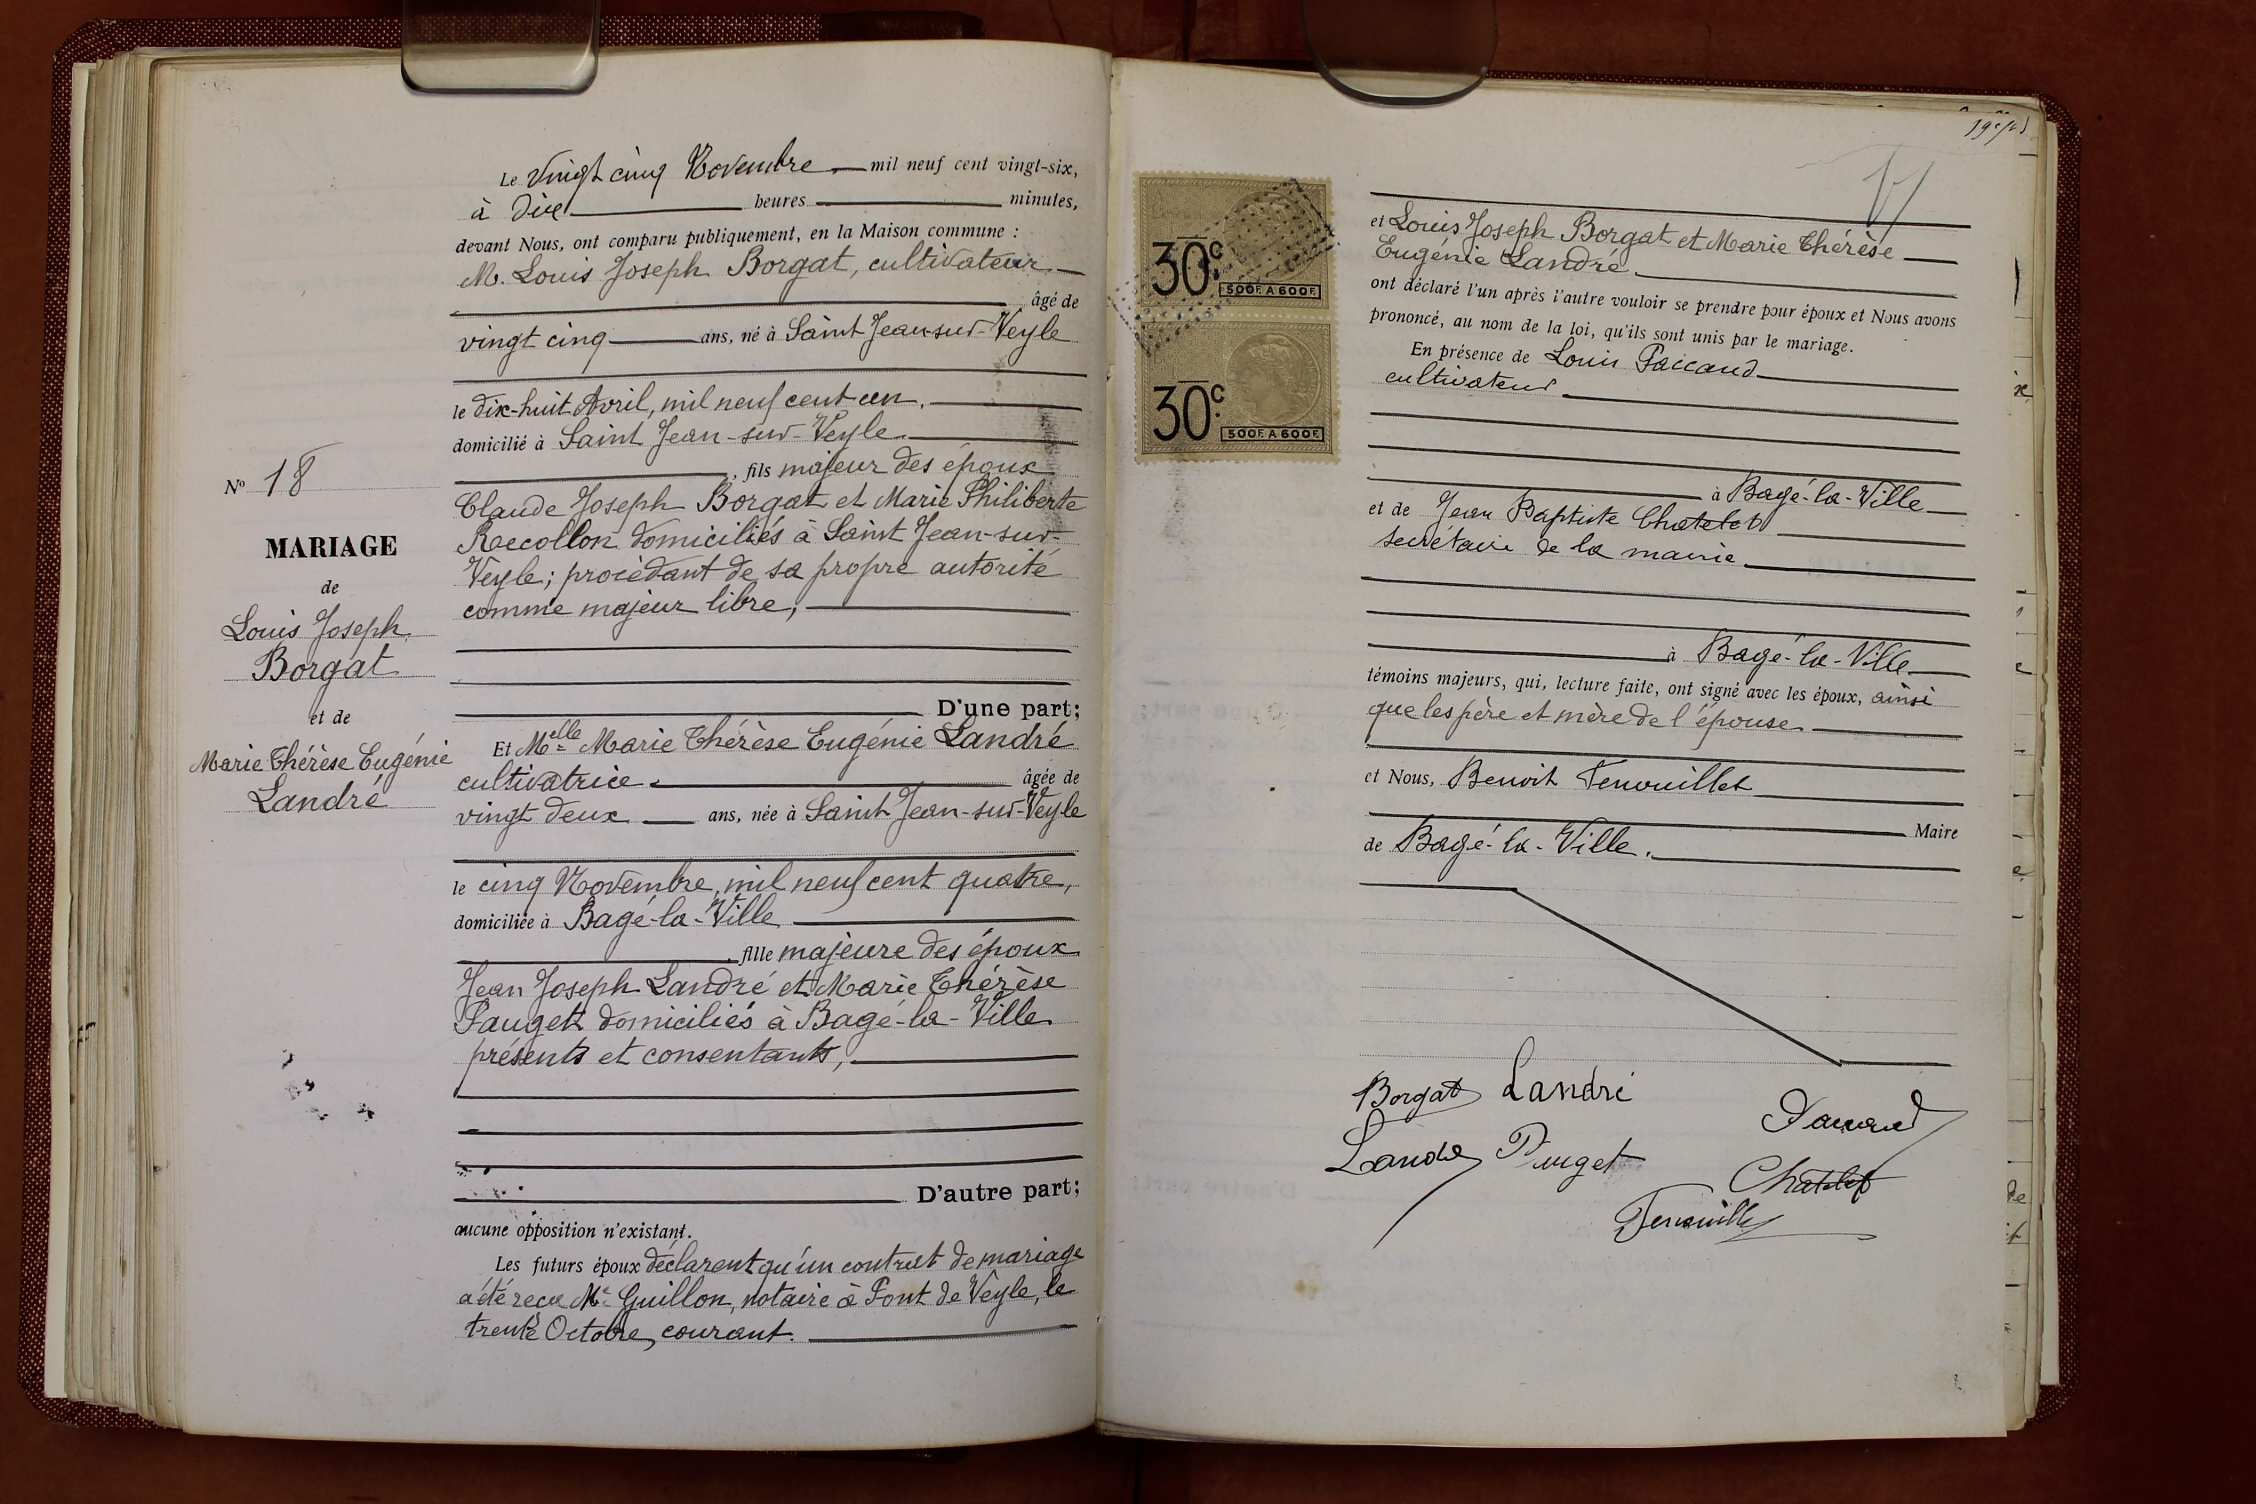 Le vingt cinq Novembre mil neuf cent vingt-six,
à dix heures minutes,
devant Nous, ont comparu publiquement, en la Maison commune :
M. Louis Joseph Borgat, cultivateur
âgé de
vingt cinq ans, né à Saint Jean-sur-Veyle
le dix-huit Avril, mil neuf cent un.
domicilié à Saint Jean-sur-Veyle
, fils majeur des époux
Claude Joseph Borgat et Marie Philiberte
Recollon domiciliés à Saint Jean-sur-
Veyle; procédant de sa propre autorité
comme majeur libre,
D'une part;
No 18
MARIAGE
de
Louis Joseph
Borgat
et de
Marie Thérèse Eugénie
Landré
Et Melle Marie Thérèse Eugénie Landré
cultivatrice âgée de
vingt deux ans, née à Saint Jean-sur-Veyle
le cinq Novembre, mil neuf cent quatre,
domiciliée à Bagé-la-Ville
, fille majeure des époux
Jean Joseph Landré et Marie Thérèse
Pauget domiciliés à Bagé-la-Ville
présents et consentants,
D'autre part;
aucune opposition n'existant.
Les futurs époux déclarent qu'un contrat de mariage
a été reçu Me Guillon, notaire à Pont de Veyle, le
trente Octobre, courant.
30c
500F. A 600F.
30c
500F. A 600F.
et Louis Joseph Borgat et Marie Thérèse
Eugénie Landré
ont déclaré l'un après l'autre vouloir se prendre pour époux et Nous avons
prononcé, au nom de la loi, qu'ils sont unis par le mariage.
En présence de Louis Paccaud
cultivateur
à Bagé-la-Ville
et de Jean Baptiste Chatelet
secrétaire de la mairie
à Bagé-la-Ville
témoins majeurs, qui, lecture faite, ont signé avec les époux, ainsi
que les père et mère de l'épouse
et Nous, Benoit Fenouillet
Maire
de Bagé-la-Ville.
Borgat Landré
Paccaud
Landré Pauget
Chatelet
Fenouillet